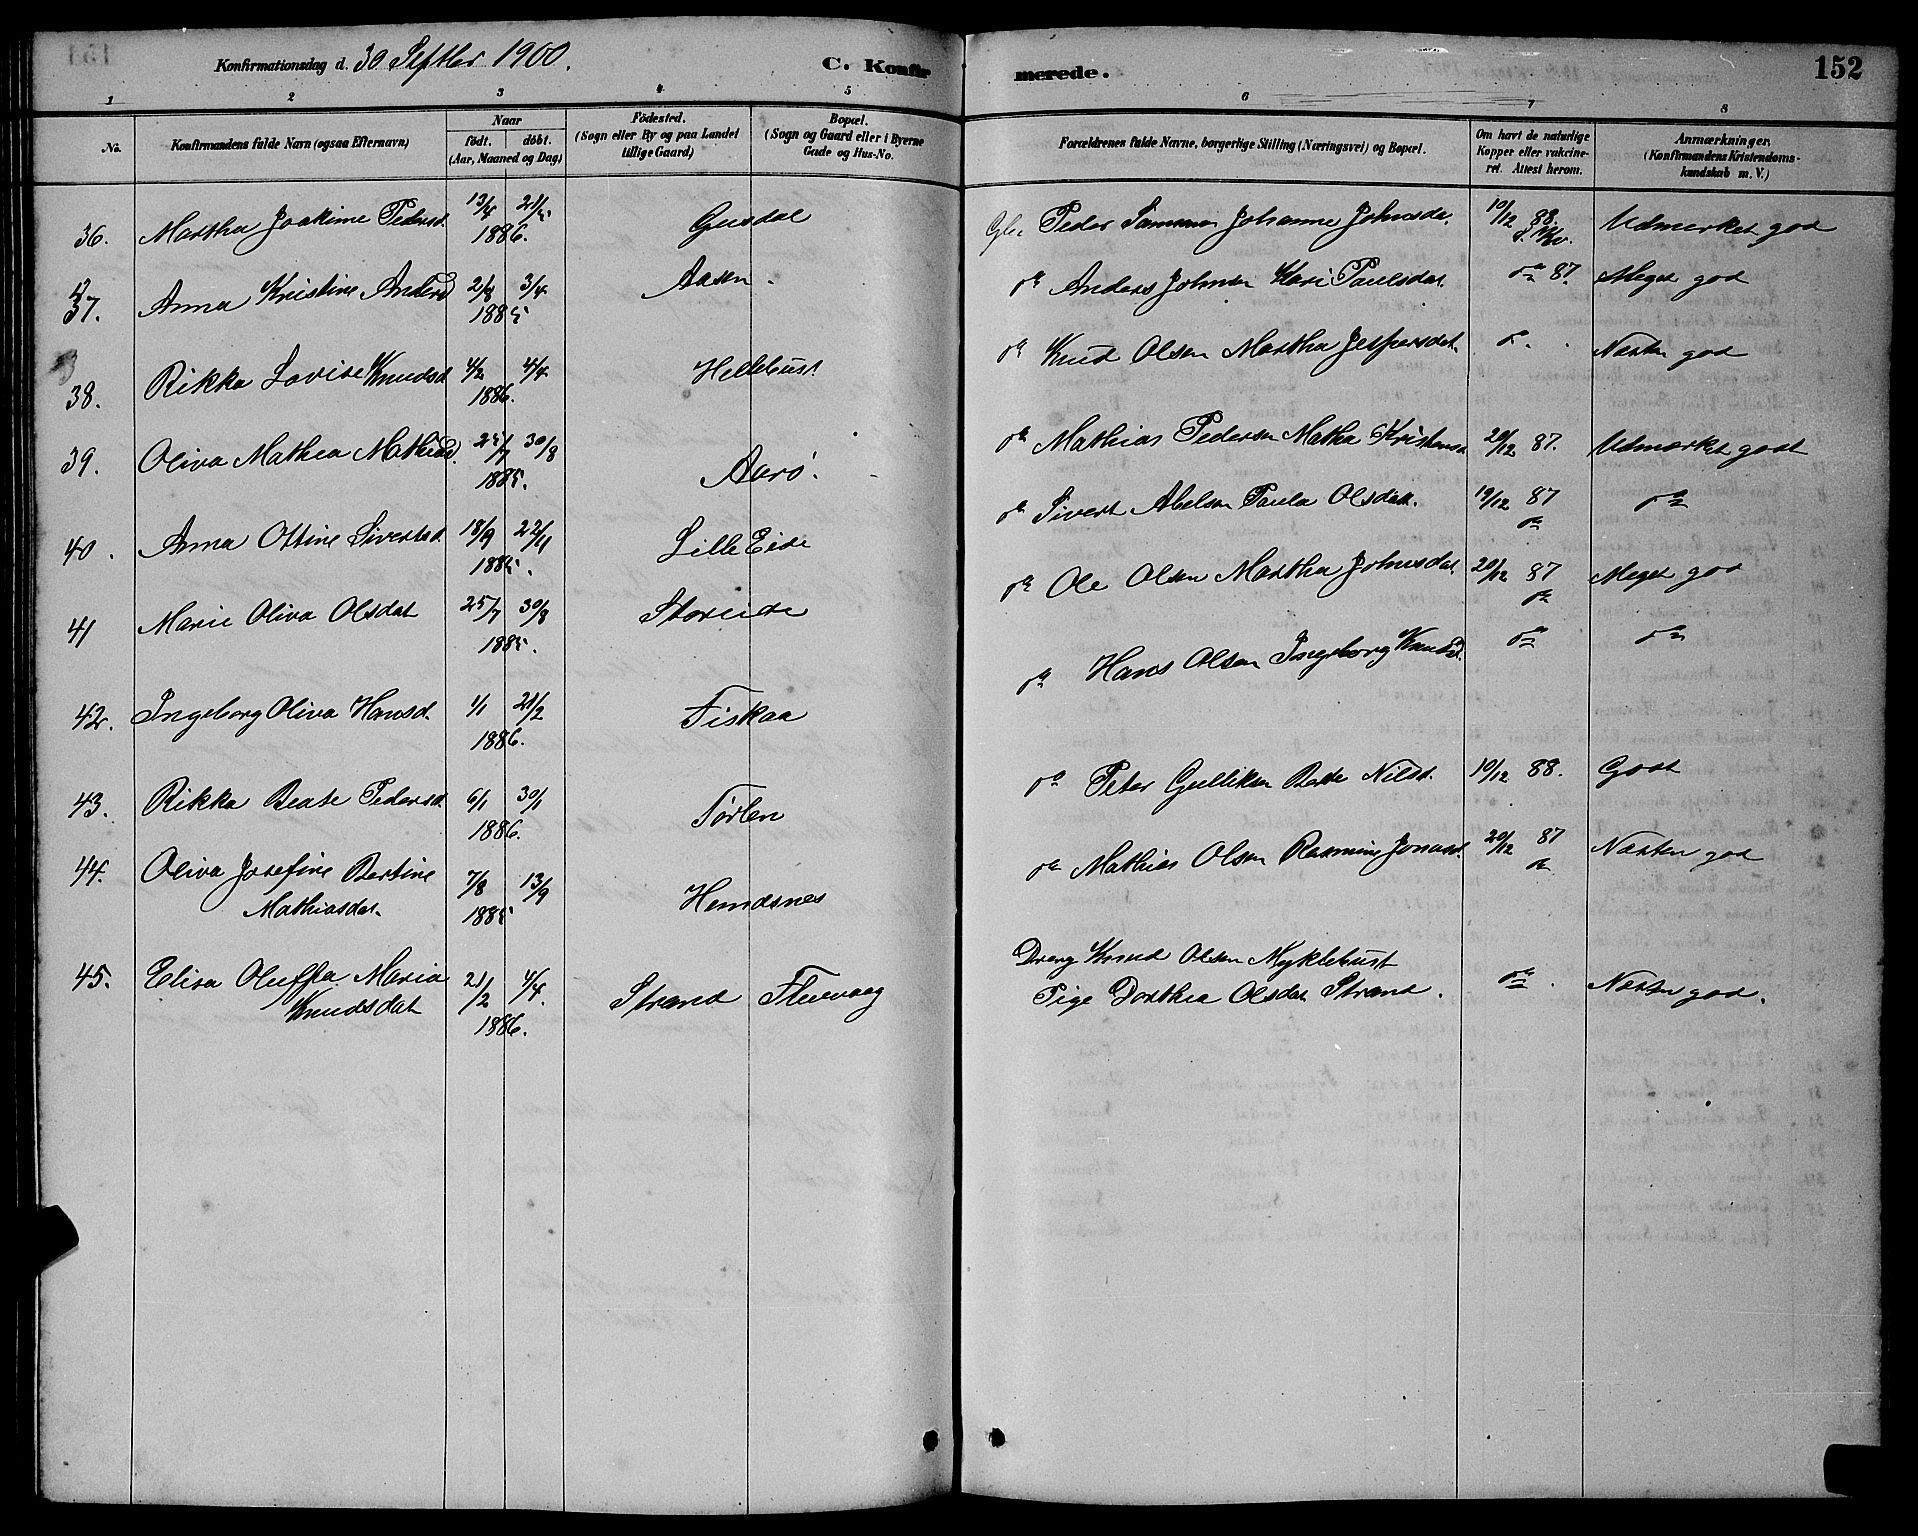 Konfirmationsdag d. 30 Septbr 1900.
C. Konfirmerede.
152
1 2 3 4 5 6 7 8
No.
Konfirmandens fulde Navn (ogsaa Efternavn)
Naar
født. døbt.
(Aar, Maaned og Dag)
Fødested.
(Sogn eller By og paa Landet
tillige Gaard)
Bopæl.
(Sogn og Gaard eller i Byerne
Gade og Hus-No.
Forældrenes fulde Navne, borgerlige Stilling (Næringsvei) og Bopæl.
Om havt de naturlige
Kopper eller vakcine-
ret. Attest herom.
Anmærkninger.
(Konfirmandens Kristendoms-
kundskab m. V.)
36. Martha Joakime Pedersd. 13/4 21/5 1886. Gusdal Peder Johanne Johnsda. 10/12 88. Udmerket god
37. Anna Kristine Andersd 2/4 3/4 1885 Aasen. do Anders Johnsen Kari Paulsdat. do 87. Meget god
38. Rikka Lovise Knudsd 4/2 4/4 1886. Hellebust do Knud Olsen Martha Jespersdat. do. Næsten god
39. Oliva Mathea Mathiasd. 25/7 30/8 1885. Aarø. do Mathias Pedersen Matha Kristensd 20/12 87. Udmærket godt
40. Anna Ottine Sivertsd. 18/9 22/11 1885. Lille Eide do Sivert Abelsen Paula Olsdat. 19/12 87 do do
41 Marie Oliva Olsdat 25/7 30/8 1885. Storeide do Ole Olsen Martha Johnsdat. 20/12 87 do Meget god
42. Ingeborg Oliva Hansd. 1/1 21/2 1886. Fiskaa do Hans Olsen Ingeborg Knudsd. do do
43. Rikka Beate Pedersd. 6/1 30/1 1886. Tørlen do Peter Gulliksen Beate Nilsd. 10/12 88. Godt
44. Oliva Josefine Bertine
Mathiasdat. 7/8 13/9 1885 Hemdsnes do Mathias Olsen Rasmine Jonasd. 20/12 87 do Næsten god
45. Elisa Oluffa Maria
Knudsdat 21/2 4/4. 1886. Strand Fluevaag Dreng Knud Olsen Myklebust
Pige Dorthea Olsdat Strand. do. Næsten god.